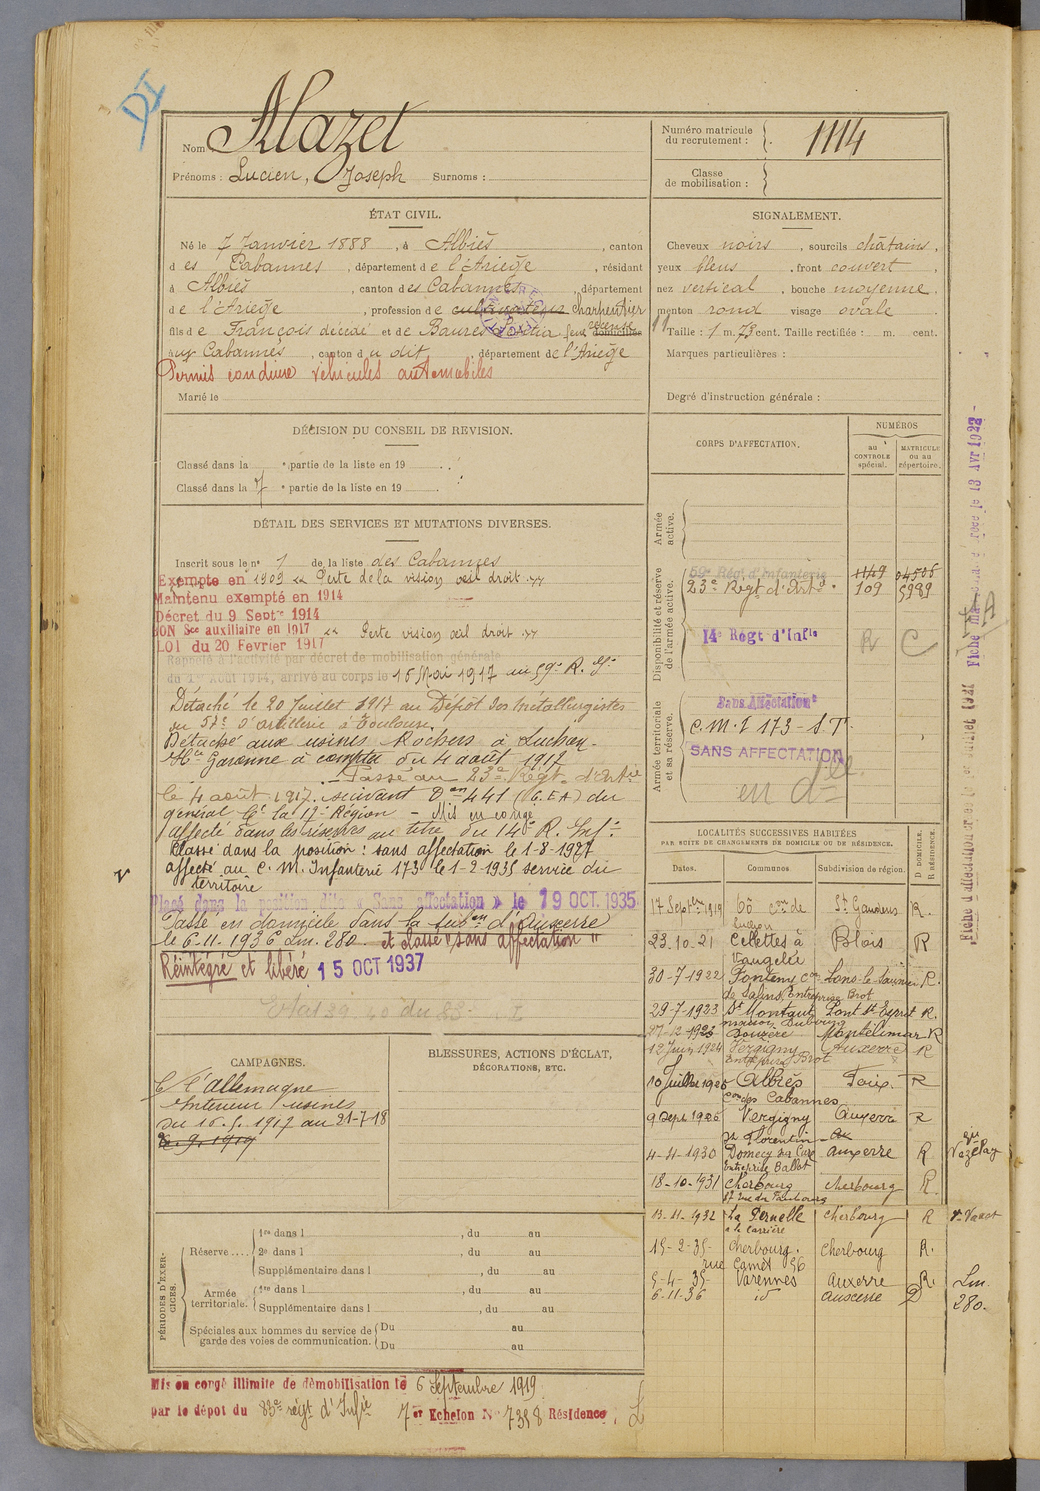 DI
Nom : Alazet
Prénoms : Lucien, Joseph Surnoms :
Numéro matricule
du recrutement : 1114
Classe
de mobilisation :
ÉTAT CIVIL.
Né le 7 Janvier 1888, à Albiès, canton
des Cabannes, département de l'Ariège, résidant
à Albiès, canton des Cabannes, département
de l'Ariège, profession de cultivateur charpentier
fils de François décédé et de
aux Cabannes, canton du dit, département de l'Ariège
Permis conduire véhicules automobiles
Marié le
SIGNALEMENT.
Cheveux noirs, sourcils châtains,
yeux bleus, front couvert,
nez vertical, bouche moyenne,
menton rond visage ovale
Taille : 1 m. 73 cent. Taille rectifiée : m. cent.
Marques particulières :
Degré d'instruction générale :
DÉCISION DU CONSEIL DE REVISION.
Classé dans la e partie de la liste en 19
Classé dans la 7 e partie de la liste en 19
DÉTAIL DES SERVICES ET MUTATIONS DIVERSES.
Inscrit sous le n° 1 de la liste des Cabannes
Exempté en 1909 « Perte de la vision œil droit »
Maintenu exempté en 1914
Décret du 9 Septre 1914
BON Sce auxiliaire en 1917 « Perte vision œil droit »
LOI du 20 Février 1917
Rappelé à l'activité par décret de mobilisation générale
du 1er Août 1914, arrivé au corps le 15 Mai 1917 au 59e R. Ie
Détaché le 20 Juillet 1917 au Dépôt des Métallurgistes
du 57e d'artillerie à Toulouse
Détaché aux usines Rochers à Luchon
Hte Garonne à compter du 4 août 1917
Passé au 23e Régt d'Artie
le 4 août 1917 suivant Don 441 (C.E.A) du
général Ct la 17e Région - Mis en congé
Affecté dans les réserves au titre du 14e R. Inf.
Classé dans la position : sans affectation le 1-8-1927
affecté au C. M. Infanterie 173 le 1-2-1935 service du
territoire
Placé dans la position dite « Sans affectation » le 19 OCT. 1935
Passé en domicile dans la subon d'Auxerre
le 6-11-1936 Lm. 280 et classé "sans affectation"
Réintégré et libéré 15 OCT 1937
CORPS D'AFFECTATION.
NUMÉROS
au
CONTROLE
spécial.
MATRICULE
ou au
répertoire.
Armée
active.
Disponibilité et réserve
de l'armée active.
59e Régt d'Infanterie 1149 04506
23e Régt d'Artie 109 5989
14e Régt d'Infie R C
Armée territoriale
et sa réserve.
Sans Affectation
C. M. I 173 - S. T.
SANS AFFECTATION
en dlle
LOCALITÉS SUCCESSIVES HABITÉES
PAR SUITE DE CHANGEMENTS DE DOMICILE OU DE RÉSIDENCE.
Dates. Communes. Subdivision de région. D DOMICILE. R RÉSIDENCE.
17 Septbre 1919 St Gaudens R.
23.10.21 Cellettes à Blois R
30-7-1922 Fonteny Con Lons-le-Saunier R.
de Salins Entreprise Brot
29-7-1923 St Montaut Pont St Esprit R.
27-12-1923 Donzère Montélimar R
12 Juin 1924 Vergigny Auxerre R
Entreprise Brot
10 Juillet 1926 Albiès Foix R
Con des Cabannes
9 Sept 1926 Vergigny Auxerre R
St Florentin
4-4-1930 Domecy sur Cure Auxerre R
Entreprise Ballot
18-10-1931 Cherbourg Cherbourg R.
13-11-1932 La Pernelle Cherbourg R
à la Carrière
15-2-35 Cherbourg. Cherbourg R.
5-4-35 Varennes Auxerre R.
6-11-36 id Auxerre D
Lm.
280.
CAMPAGNES.
C/ l'Allemagne
Intérieur usines
du 15.5.1917 au 21-7-18
BLESSURES, ACTIONS D'ÉCLAT,
DÉCORATIONS, ETC.
PÉRIODES D'EXERCICES.
Réserve.... 1re dans l , du au
2e dans l , du au
Supplémentaire dans l , du au
Armée
territoriale. 1re dans l , du au
Supplémentaire dans l , du au
Spéciales aux hommes du service de
garde des voies de communication. Du au
Du au
Mis en congé illimité de démobilisation le 6 Septembre 1919
par le dépôt du 83e régt d'Infie 7er Echelon No 7358 Résidence :